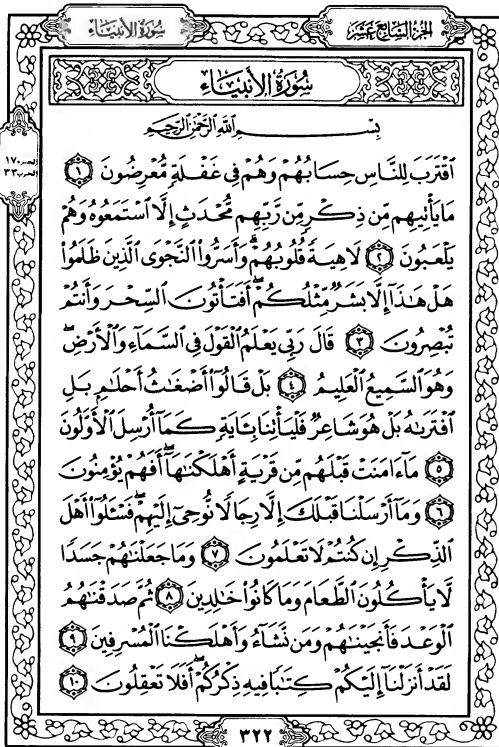 سُورَةُ الأَنبِيَاء
الجُزْءُ السَّابِعَ عَشَرَ
الجزء ١٧
الحزب ٣٣
سُورَةُ الأَنبِيَاء
بِسْمِ اللَّهِ الرَّحْمَٰنِ الرَّحِيمِ
ٱقْتَرَبَ لِلنَّاسِ حِسَابُهُمْ وَهُمْ فِى غَفْلَةٍ مُّعْرِضُونَ ١
مَا يَأْتِيهِم مِّن ذِكْرٍ مِّن رَّبِّهِم مُّحْدَثٍ إِلَّا ٱسْتَمَعُوهُ وَهُمْ
يَلْعَبُونَ ٢ لَاهِيَةً قُلُوبُهُمْ ۗ وَأَسَرُّوا۟ ٱلنَّجْوَى ٱلَّذِينَ ظَلَمُوا۟
هَلْ هَٰذَآ إِلَّا بَشَرٌ مِّثْلُكُمْ ۖ أَفَتَأْتُونَ ٱلسِّحْرَ وَأَنتُمْ
تُبْصِرُونَ ٣ قَالَ رَبِّى يَعْلَمُ ٱلْقَوْلَ فِى ٱلسَّمَآءِ وَٱلْأَرْضِ ۖ
وَهُوَ ٱلسَّمِيعُ ٱلْعَلِيمُ ٤ بَلْ قَالُوٓا۟ أَضْغَٰثُ أَحْلَٰمٍۭ بَلِ
ٱفْتَرَىٰهُ بَلْ هُوَ شَاعِرٌ فَلْيَأْتِنَا بِـَٔايَةٍ كَمَآ أُرْسِلَ ٱلْأَوَّلُونَ
٥ مَآ ءَامَنَتْ قَبْلَهُم مِّن قَرْيَةٍ أَهْلَكْنَٰهَآ ۖ أَفَهُمْ يُؤْمِنُونَ
٦ وَمَآ أَرْسَلْنَا قَبْلَكَ إِلَّا رِجَالًا نُّوحِىٓ إِلَيْهِمْ ۖ فَسْـَٔلُوٓا۟ أَهْلَ
ٱلذِّكْرِ إِن كُنتُمْ لَا تَعْلَمُونَ ٧ وَمَا جَعَلْنَٰهُمْ جَسَدًا
لَّا يَأْكُلُونَ ٱلطَّعَامَ وَمَا كَانُوا۟ خَٰلِدِينَ ٨ ثُمَّ صَدَقْنَٰهُمُ
ٱلْوَعْدَ فَأَنجَيْنَٰهُمْ وَمَن نَّشَآءُ وَأَهْلَكْنَا ٱلْمُسْرِفِينَ ٩
لَقَدْ أَنزَلْنَآ إِلَيْكُمْ كِتَٰبًا فِيهِ ذِكْرُكُمْ ۖ أَفَلَا تَعْقِلُونَ ١٠
٣٢٢